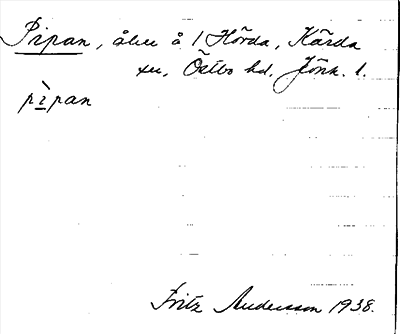 Pipan, åker å 1 Hörda, Kärda
sn, Östbo hd. Jönk. l.
pìpan
Fritz Andersson 1938.